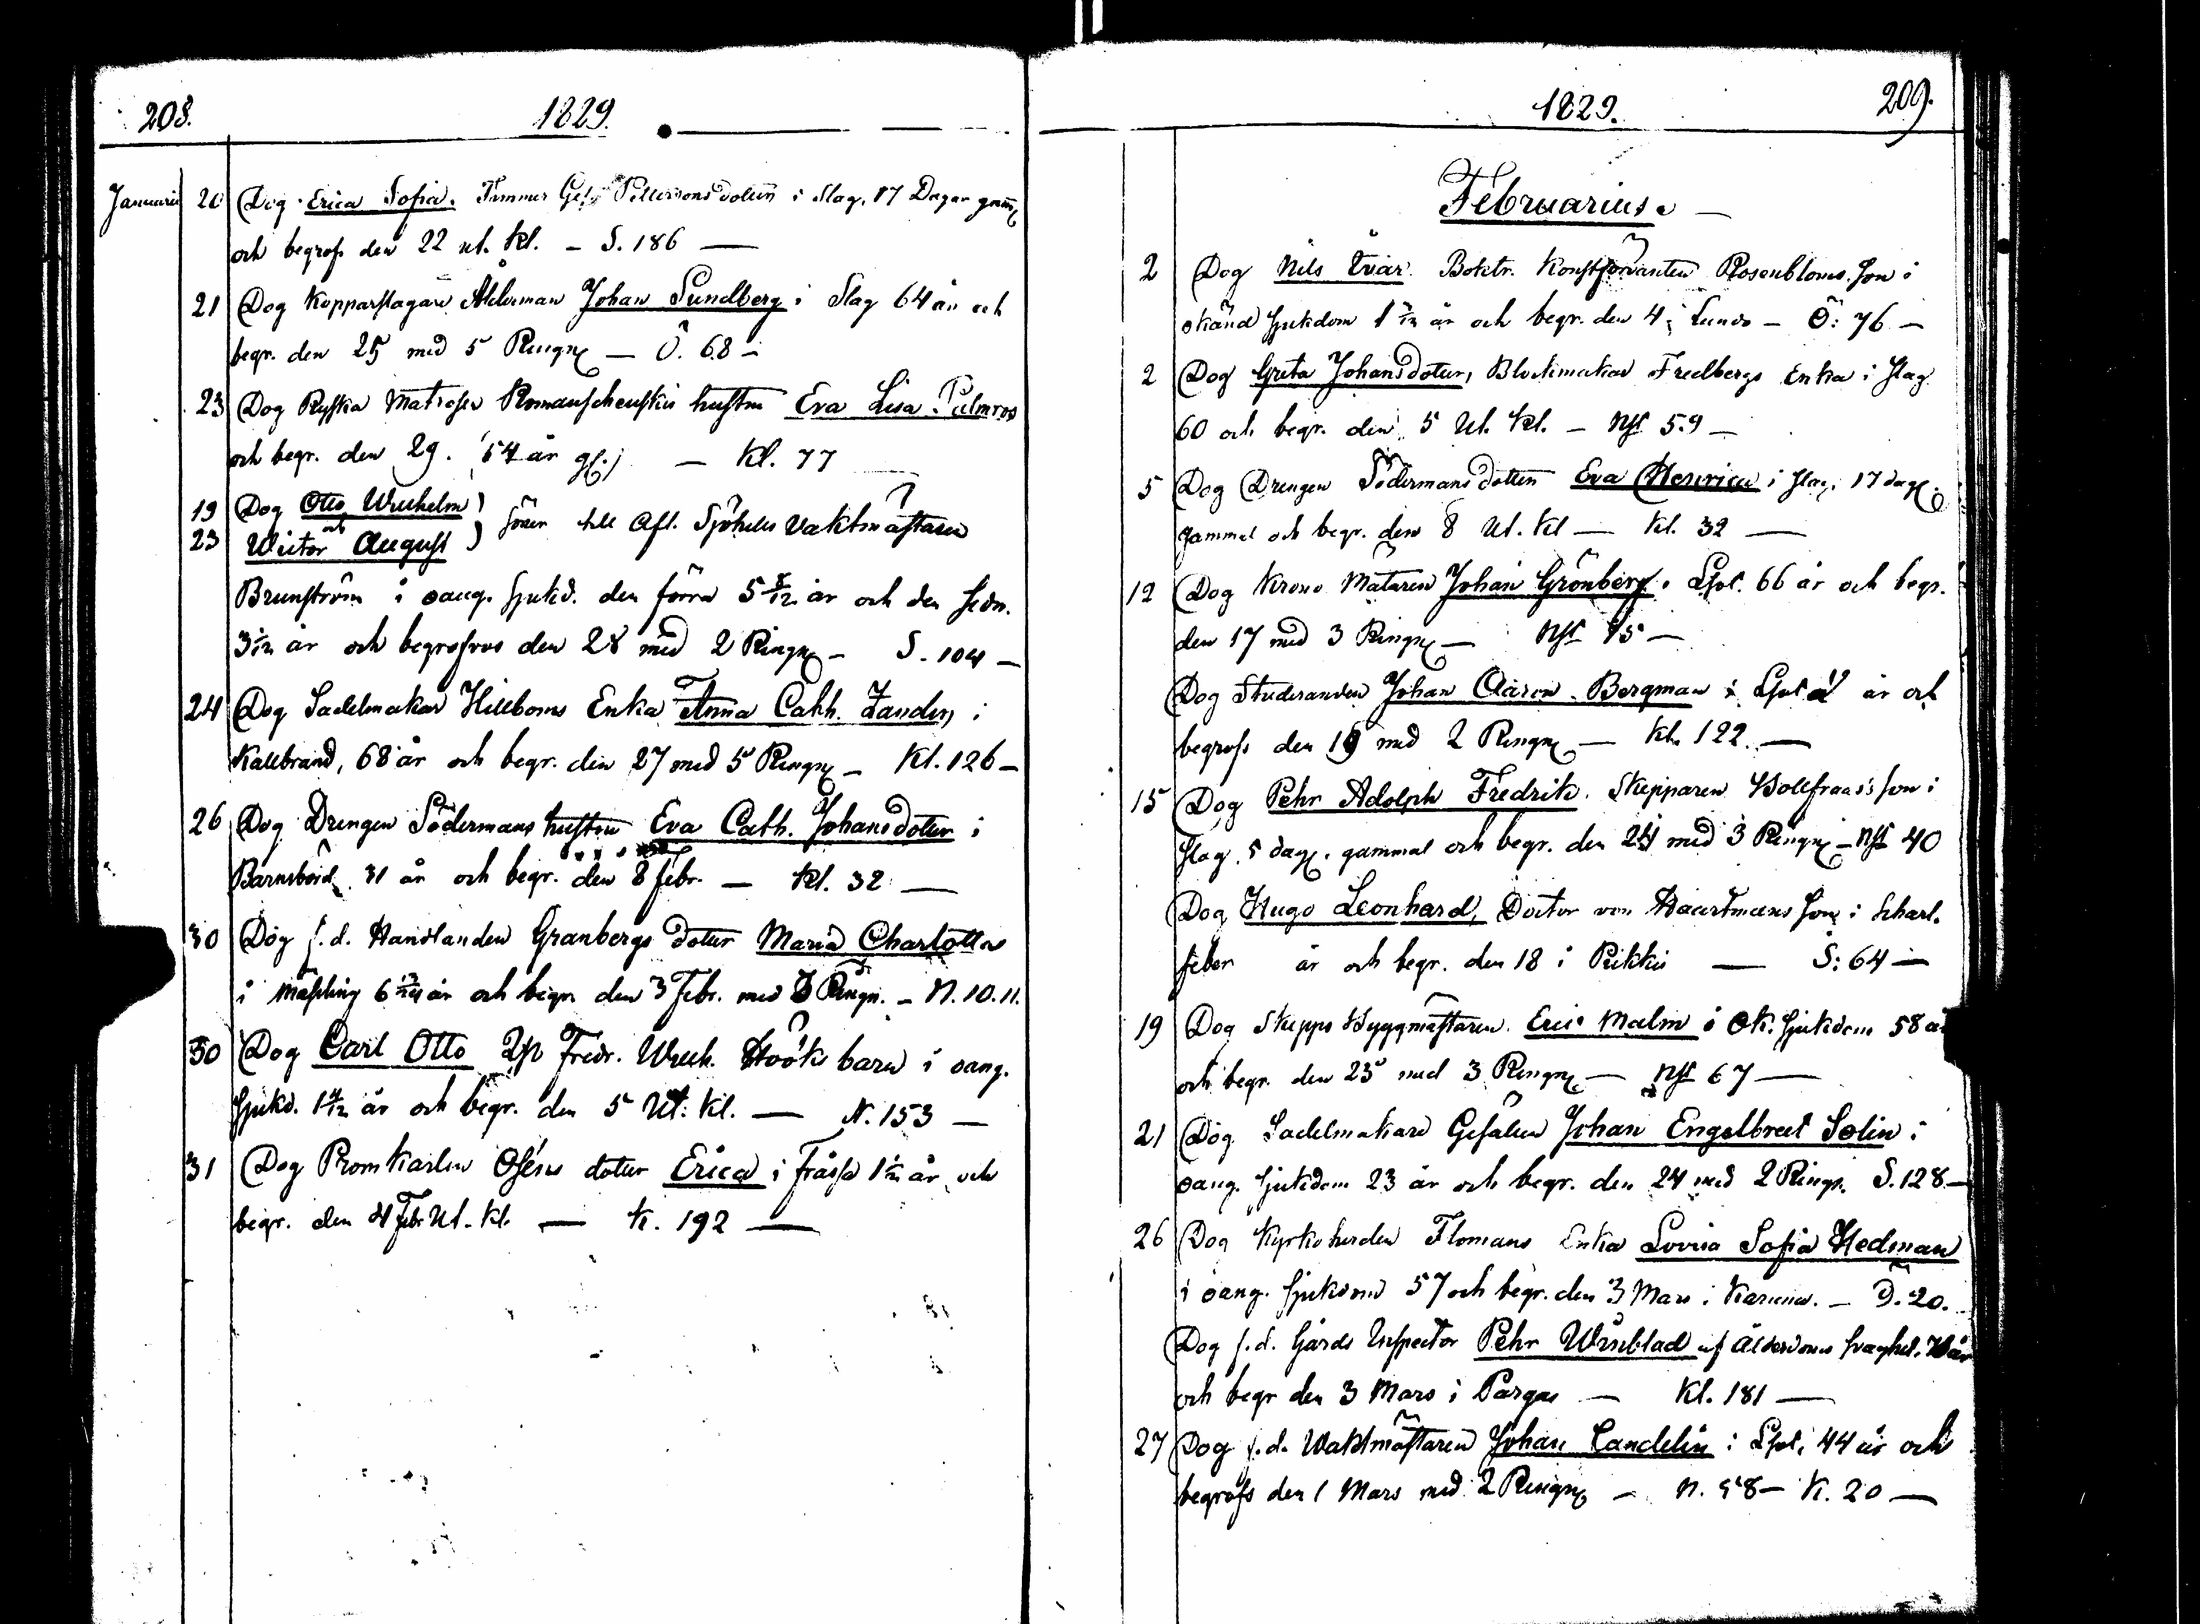 208.
1829.
Januarii 20 Dog Erica Sofia. Timmer Ges. Pettersons doter i Slag, 17 Dagar gaml
och begrofs den 22 ut. Kl. – S. 186 —
21 Dog Kopparslagare Ålderman Johan Sundberg i Slag 64 år och
begr. den 25 med 5 Ringn. — Ö. 68 –
23 Dog Ryska Matrosen Romanschenskis hustru Eva Lisa Palmros
och begr. den 29. (54 år gl.) — Kl. 77
19 Dog Otto Wilhelm
23 och Victor August söner till Afl. Sjötulls Vaktmästaren
Brunström i oang. sjukd. den förra 5 5/12 år och den sedn.
3 1/12 år och begrofvos den 28 med 2 Ringn. – S. 104 –
24 Dog Sadelmakar Hillboms Enka Anna Cath. Zander, i
Kallbrand, 68 år och begr. den 27 med 5 Ringn. – Kl. 126 –
26 Dog Drengen Södermans hustru Eva Cath. Johansdoter i
Barnsbörd 31 år och begr. den 8 febr. — Kl. 32 —
30 Dog f.d. Handlanden Granbergs doter Maria Charlotta
i Mässling 6 år och begr. den 3 Febr. med Ringn. – N. 10. 11.
30 Dog Carl Otto Fredr. Wilh. Höök barn i oang.
sjukd. 1 4/12 år och begr. den 5 Ut. Kl. — N. 153 —
31 Dog Promkarlen doter Erica i Frässa 1 1/12 år och
begr. den 4 Febr Ut. Kl. — K. 192 —
1829.
209.
Februarius. —
2 Dog Nils Ivar. Boktr. Konstförvanten Rosenbloms Son i
okänd sjukdom 1 7/12 år och begr. den 4 i Lundo – Ö: 76 –
2 Dog Greta Johansdoter, Blockmakar Fredbergs Enka i slag
60 och begr. den 5 Ut. Kl. – Nst 59 –
5 Dog Drengen Södermans dotter Eva Henrica i slag, 17 dag.
gammal och begr. den 8 Ut. Kl — Kl. 32 —
12 Dog Krono Mätaren Johan Grönberg i Lsot. 66 år och begr.
den 17 med 3 Ringn. — Nst 15 —
Dog Studeranden Johan Aaron Bergman i Lsot år och
begrofs den 19 med 2 Ringn. — Kl. 122. —
15 Dog Pehr Adolph Fredrik. Skepparen Wollfraas's son i
slag, 5 dag. gammal och begr. den 24 med 3 Ringn. – Nst 40
Dog Hugo Leonhard, Doctor von Haartmans son i Scharl.
feber år och begr. den 18 i Pikkis — S: 64 —
19 Dog Skepps Byggmästaren Eric Malm i Ok. sjukdom 58 år
och begr. den 25 med 3 Ringn. — Nst 67 —
21 Dog Sadelmakare Gesällen Johan Engelbrect Solin i
oang. sjukdom 23 år och begr. den 24 med 2 Ringn. S. 128 —
26 Dog Kyrkoherden Flomans Enka Lovisa Sofia Hedman
i oang. sjukdom 57 och begr. den 3 Mars i Karuna. – D. 20.
Dog f.d. Gårds Inspector Pehr Winblad af Ålderdoms svaghet. år
och begr den 3 Mars i Pargas — Kl. 181 —
27 Dog f.d. Waktmästaren Johan Candelin i Lsot, 44 år och
begrofs den 1 Mars med 2 Ringn. – N. 58 – K. 20 —